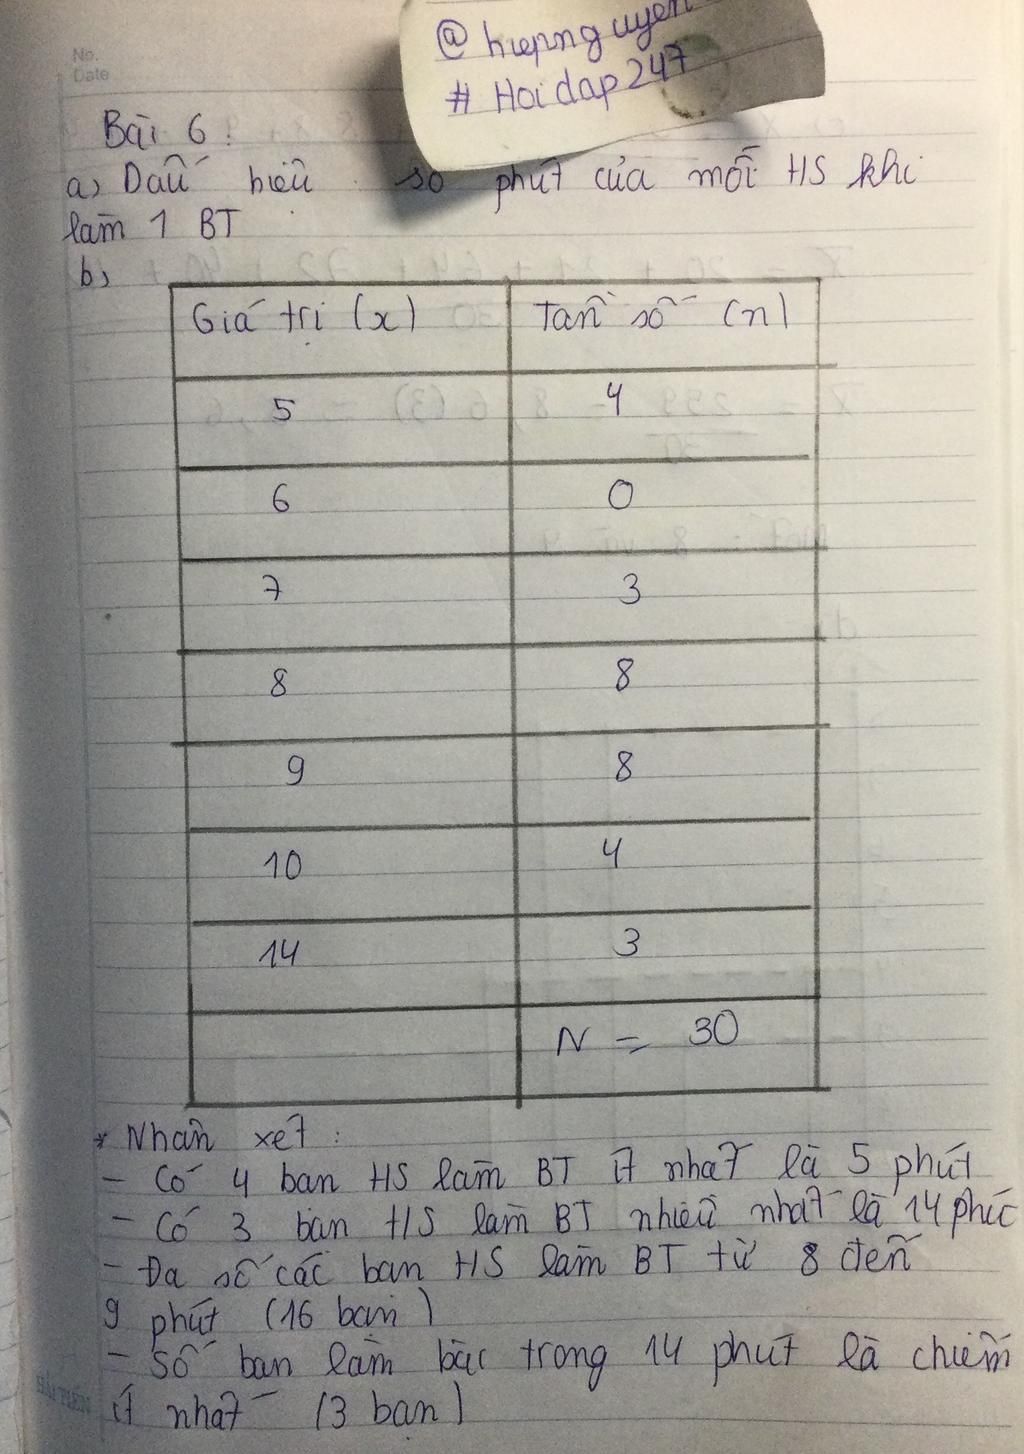 @ hiepnguyen
# Hoidap247
No.
Date
Bài 6:
a) Dấu hiệu : số phút của mỗi HS khi
làm 1 BT
b)
Giá trị (x) Tần số (n)
5 4
6 0
7 3
8 8
9 8
10 4
14 3
N = 30
* Nhận xét :
- Có 4 bạn HS làm BT ít nhất là 5 phút
- Có 3 bạn HS làm BT nhiều nhất là 14 phút
- Đa số các bạn HS làm BT từ 8 đến
9 phút (16 bạn)
- Số bạn làm bài trong 14 phút là chiếm
ít nhất (3 bạn)